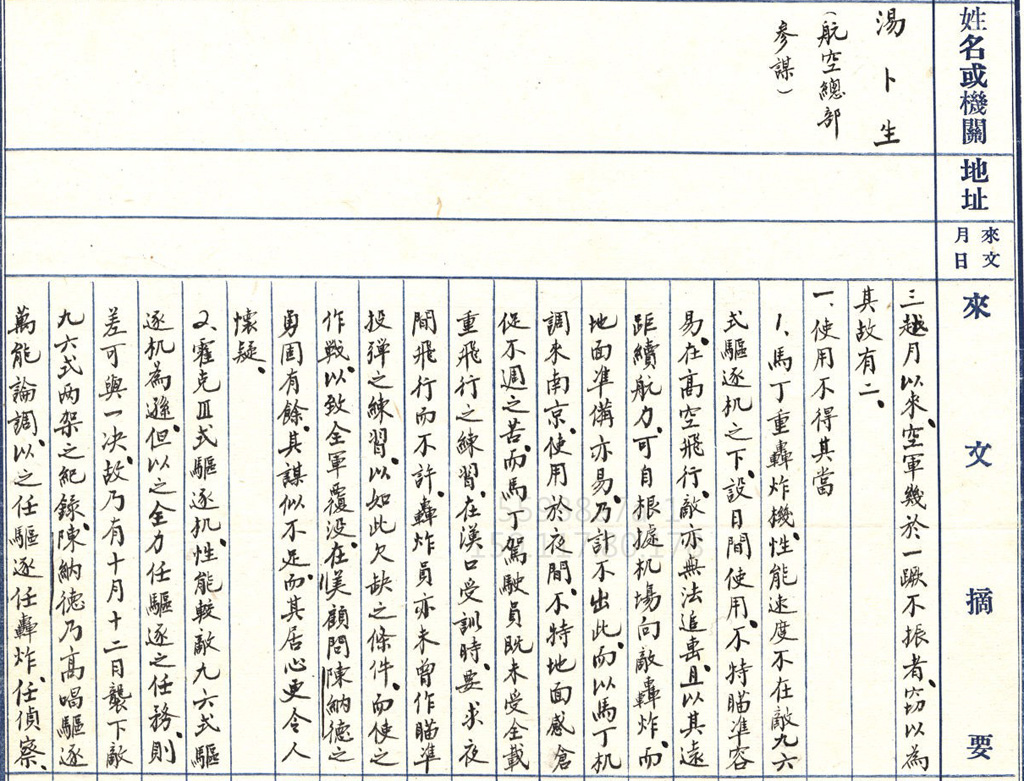 姓名或機關
地址
來文
月日
來文摘要
湯卜生
（航空總部
參謀）
三、越月以來、空軍幾於一蹶不振者、窃以為
其故有二、
一、使用不得其當
1、馬丁重轟炸機、性能速度不在敵九六
式驅逐机之下、設日間使用、不特瞄準容
易、在高空飛行、敵亦無法追擊、且以其遠
距續航力、可自根據机場向敵轟炸、而
地面準備亦易、乃計不出此、而以馬丁机
調來南京、使用於夜間、不特地面感倉
促不週之苦、而馬丁駕駛員既未受全載
重飛行之練習、在漢口受訓時、要求夜
間飛行而不許、轟炸員亦未曾作瞄準
投彈之練習、以如此欠缺之條件、而使之
作戰、以致全軍覆没、在美顧問陳納德之
勇固有餘、其謀似不足、而其居心更令人
懷疑、
2、霍克III式驅逐机、性能較敵九六式驅
逐机為遜、但以之全力任驅逐之任務、則
差可與一决、故乃有十月十二日襲下敵
九六式兩架之紀錄、陳納德乃高唱驅逐
萬能論調、以之任驅逐任轟炸、任偵察、